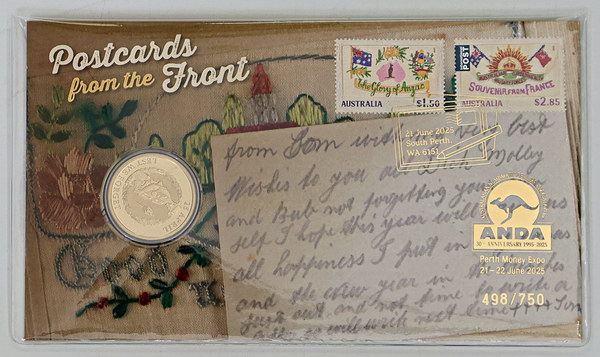 Postcards
from the Front
The Glory of Anzac
AUSTRALIA $1.50
POST
SOUVENIR FROM FRANCE
AUSTRALIA $2.85
21 June 2025
South Perth
WA 6151
LEST WE FORGET
25 APRIL
from Tom with best
Wishes to you Molley
and Bub not forgetting your
self I hope this year will us
all happiness I put in as
and the new year in
out and not time to write a
will write next time Tom
ANDA
30TH ANNIVERSARY 1995-2025
Perth Money Expo
21 - 22 June 2025
498/750